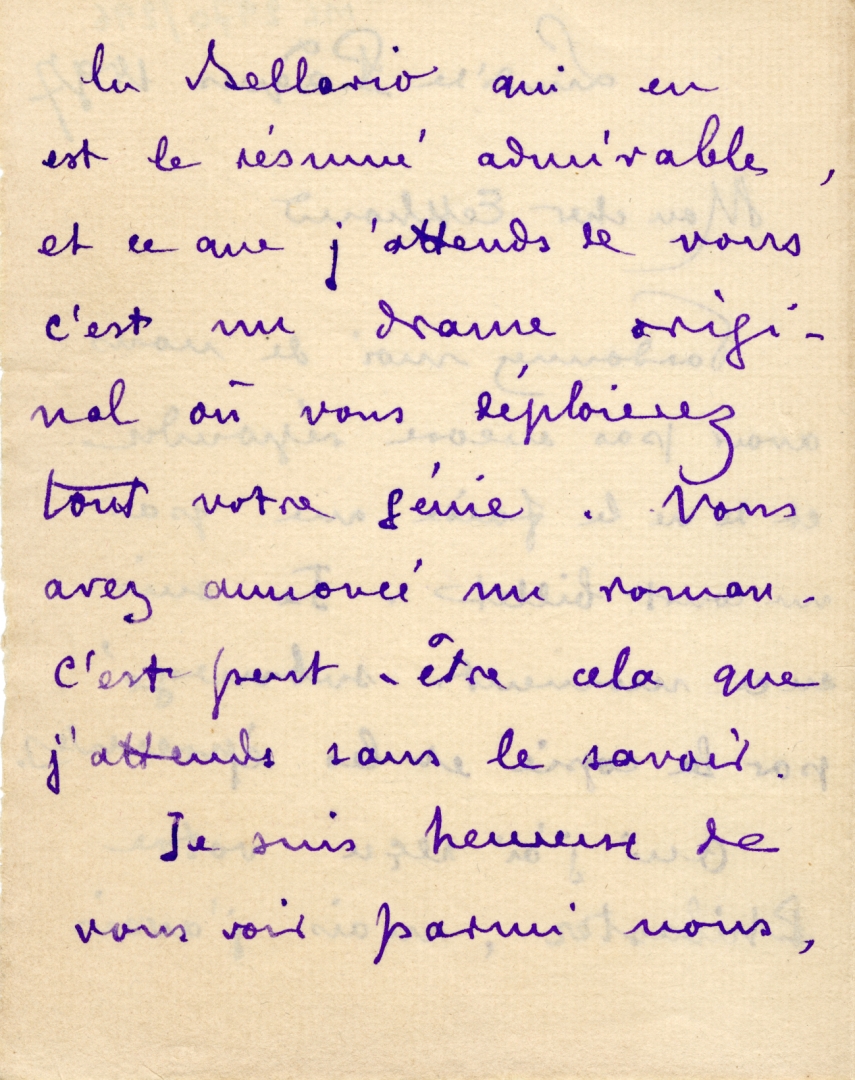 lu Bellario qui en
est le résumé admirable,
et ce que j'attends de vous
c'est un drame origi-
nal où vous déploierez
tout votre génie. Vous
avez annoncé un roman.
C'est peut-être cela que
j'attends sans le savoir.
Je suis heureuse de
vous voir parmi nous,